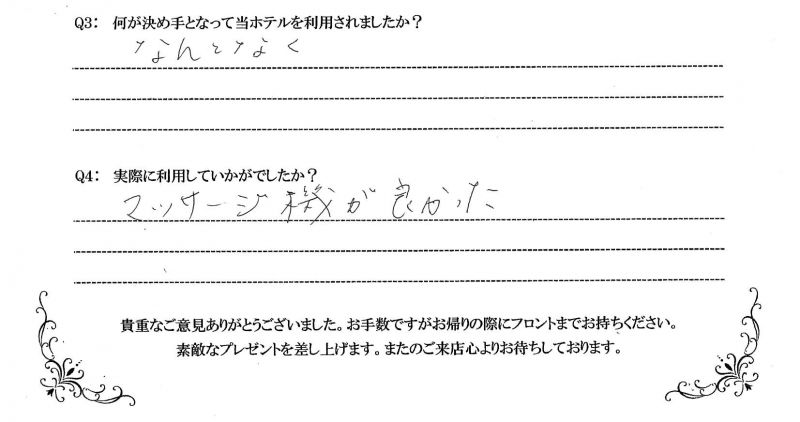 Q3： 何が決め手となって当ホテルを利用されましたか？
なんとなく
Q4： 実際に利用していかがでしたか？
マッサージ機が良かった
貴重なご意見ありがとうございました。お手数ですがお帰りの際にフロントまでお持ちください。
素敵なプレゼントを差し上げます。またのご来店心よりお待ちしております。